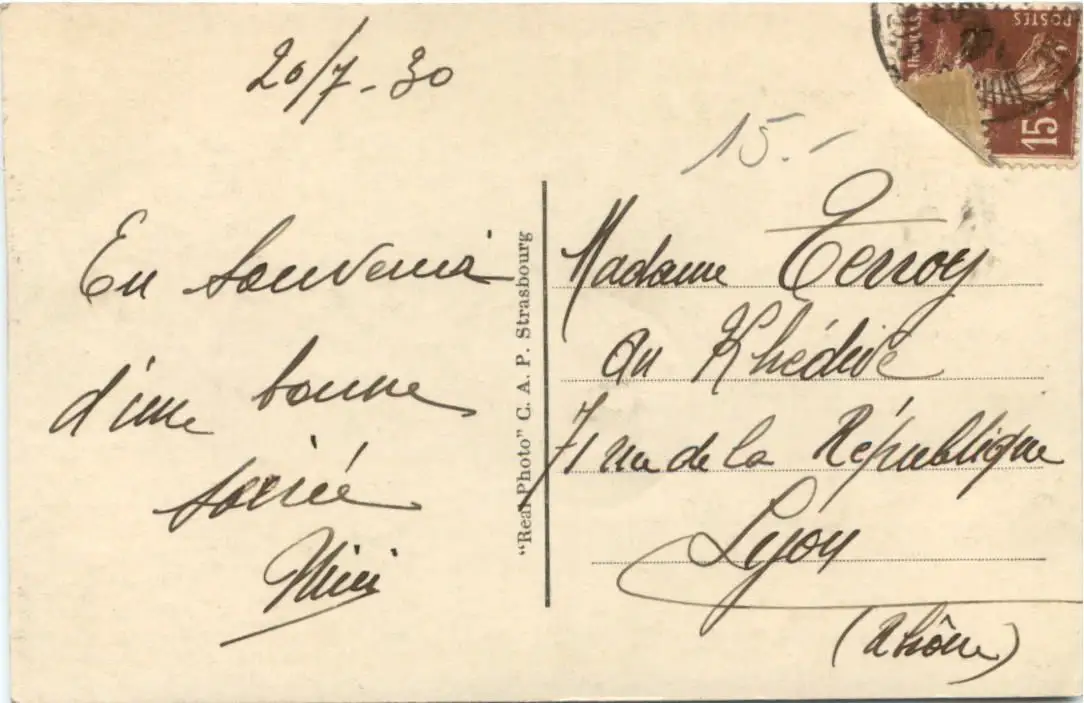 20/7-30
En souvenir
d'une bonne
soirée
Mimi
"Real-Photo" C. A. P. Strasbourg
POSTES
15
15.-
Madame Terroy
au Khédive
71 rue de la République
Lyon
(Rhône)